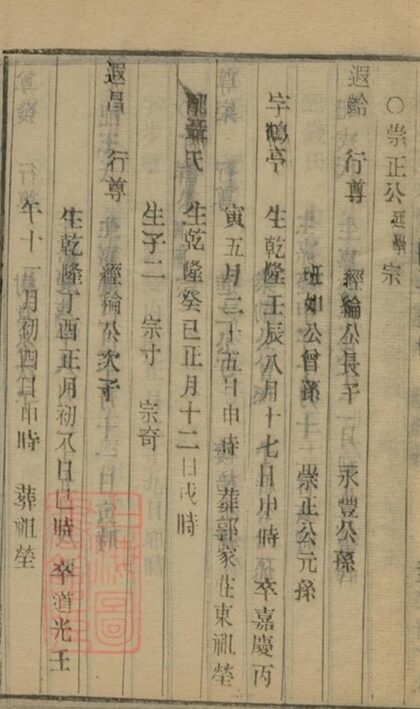 ○崇正公 宗
遐齡 行尊 經綸公長子 永豐公孫
公曾孫 崇正公元孫
字鶴亭 生乾隆壬辰八月十七日申時 卒嘉慶丙
寅五月二十五日申時 葬郭家庄東祖塋
配聶氏 生乾隆癸巳正月十二日戌時
生子二 宗寸 宗奇
遐昌 行尊 經綸公次子
生乾隆丁酉正月初八日巳時 卒道光壬
午十一月初四日申時 葬祖塋